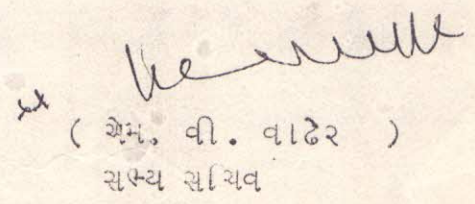 ( એમ. વી. વાઢેર )
સભ્ય સચિવ